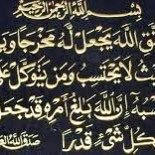 بِسْمِ اللهِ الرَّحْمٰنِ الرَّحِيمِ
تَّقِ اللهَ يَجْعَلْ لَهُ مَخْرَجًا وَيَ
ثُ لَا يَحْتَسِبُ وَمَنْ يَتَوَكَّلْ عَلَى
سْبُهُ إِنَّ اللهَ بَالِغُ أَمْرِهِ قَدْ جَعَلَ
لِكُلِّ شَيْءٍ قَدْرًا صَدَقَ اللهُ الع